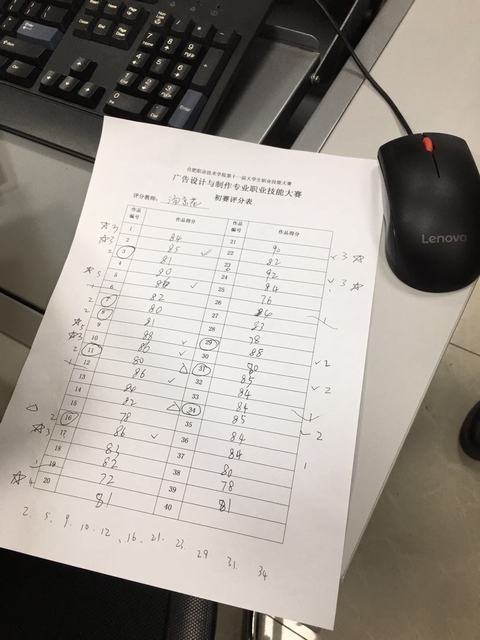 合肥职业技术学院第十一届大学生职业技能大赛
广告设计与制作专业职业技能大赛
评分教师: 初赛评分表
作品编号 作品得分 作品编号 作品得分
1 84 21 90
2 85 ✓ 22 82
3 81 23 92
4 80 24 84
5 25 76
6 82 26 84
7 80 27 83
8 81 28 78
9 88 29 88
10 86 30 80
11 80 31 85
12 86 32 84
13 33 84
14 82 34 85
15 78 35 84
16 86 36 84
17 83 37 80
18 82 38 78
19 72 39 81
20 81 40
2. 5. 9. 10. 12. 16. 21. 23. 29 31. 34
Lenovo